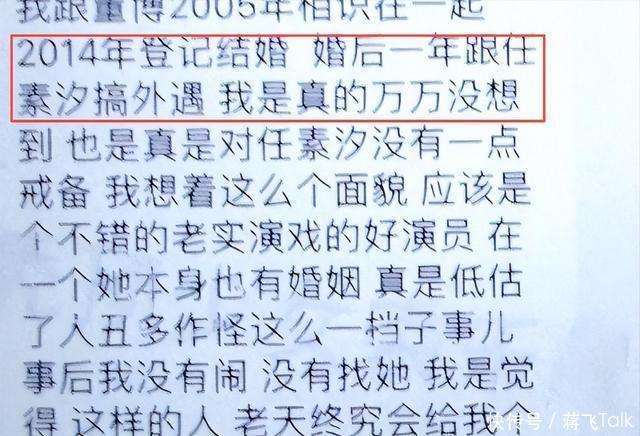 我跟董博2005年相识在一起
2014年登记结婚 婚后一年跟任
素汐搞外遇 我是真的万万没想
到 也是真是对任素汐没有一点
戒备 我想着这么个面貌 应该是
个不错的老实演戏的好演员 在
一个她本身也有婚姻 真是低估
了人丑多作怪这么一档子事儿
事后我没有闹 没有找她 我是觉
得 这样的人 老天终究会给我个
快传号 / 蒋飞Talk